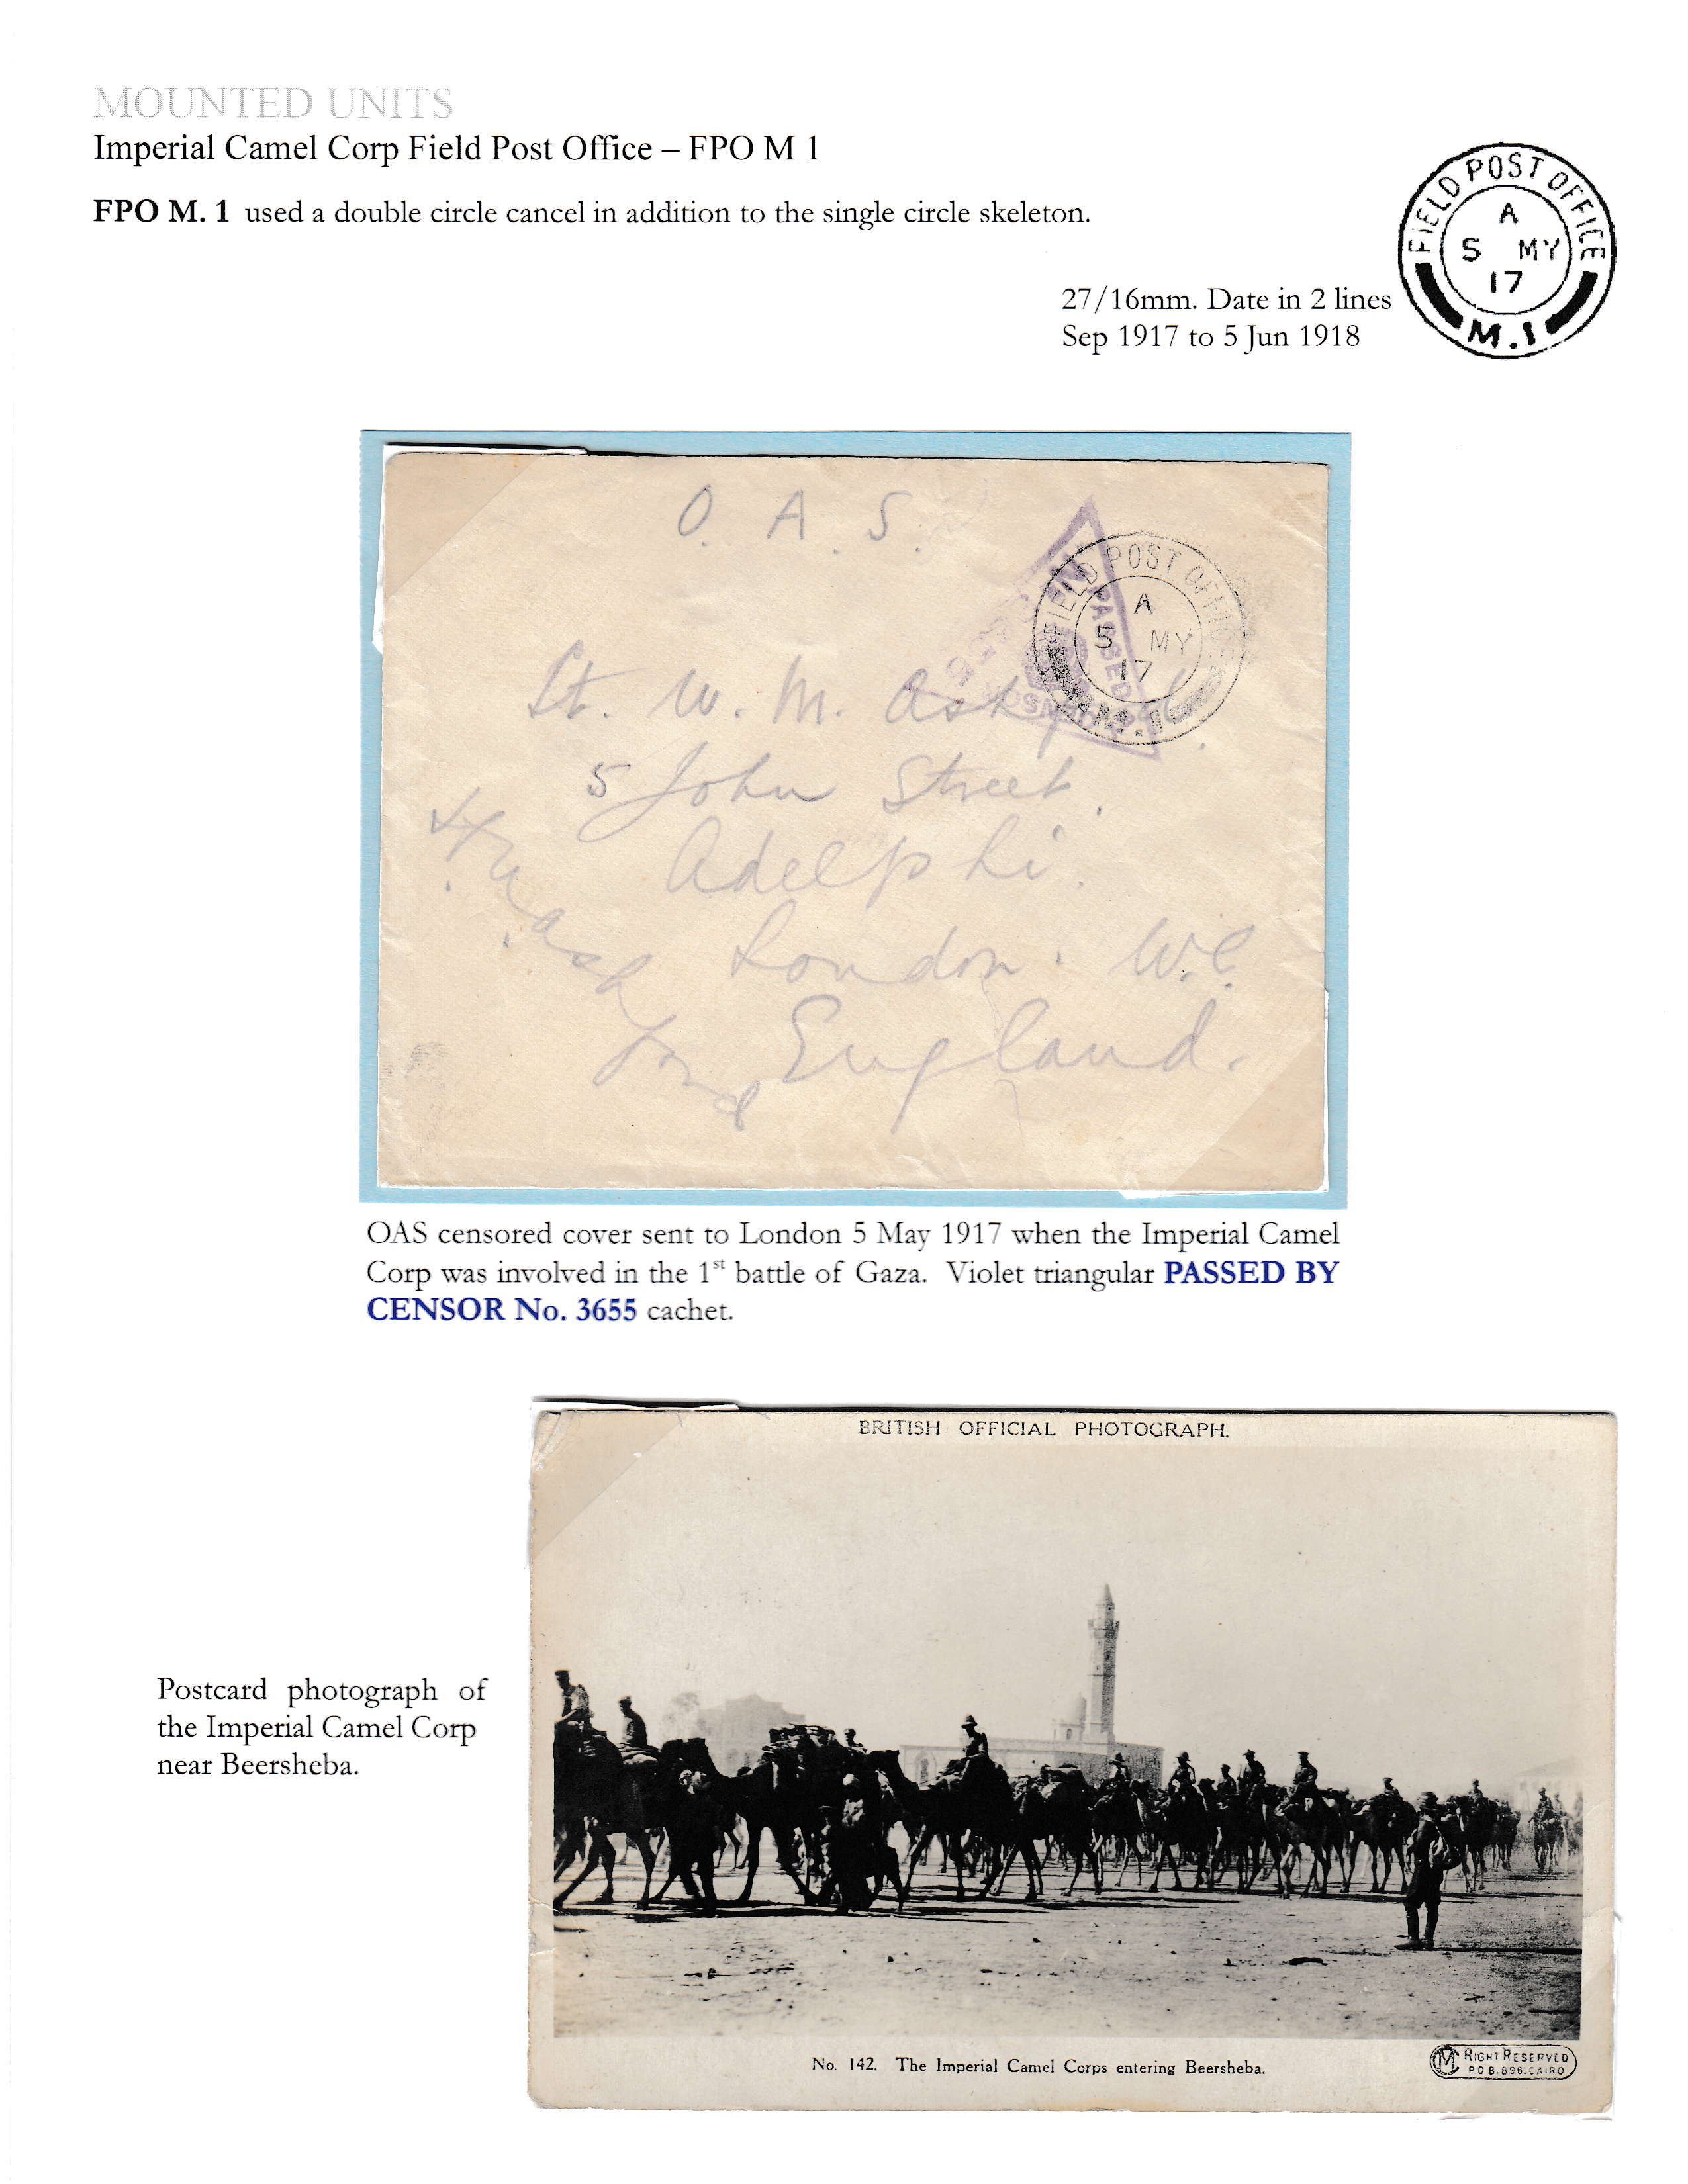 MOUNTED UNITS
Imperial Camel Corp Field Post Office – FPO M 1
FPO M. 1 used a double circle cancel in addition to the single circle skeleton.
FIELD POST OFFICE
A
5 MY
17
M.1
27/16mm. Date in 2 lines
Sep 1917 to 5 Jun 1918
O. A. S.
FIELD POST OFFICE
A
5 MY
17
PASSED
CENSOR
Lt. W. M.
5 John Street.
Adelphi.
London. W.C.
England.
OAS censored cover sent to London 5 May 1917 when the Imperial Camel
Corp was involved in the 1st battle of Gaza. Violet triangular PASSED BY
CENSOR No. 3655 cachet.
BRITISH OFFICIAL PHOTOGRAPH.
Postcard photograph of
the Imperial Camel Corp
near Beersheba.
No. 142. The Imperial Camel Corps entering Beersheba.
RIGHT RESERVED
P.O.B. 896. CAIRO